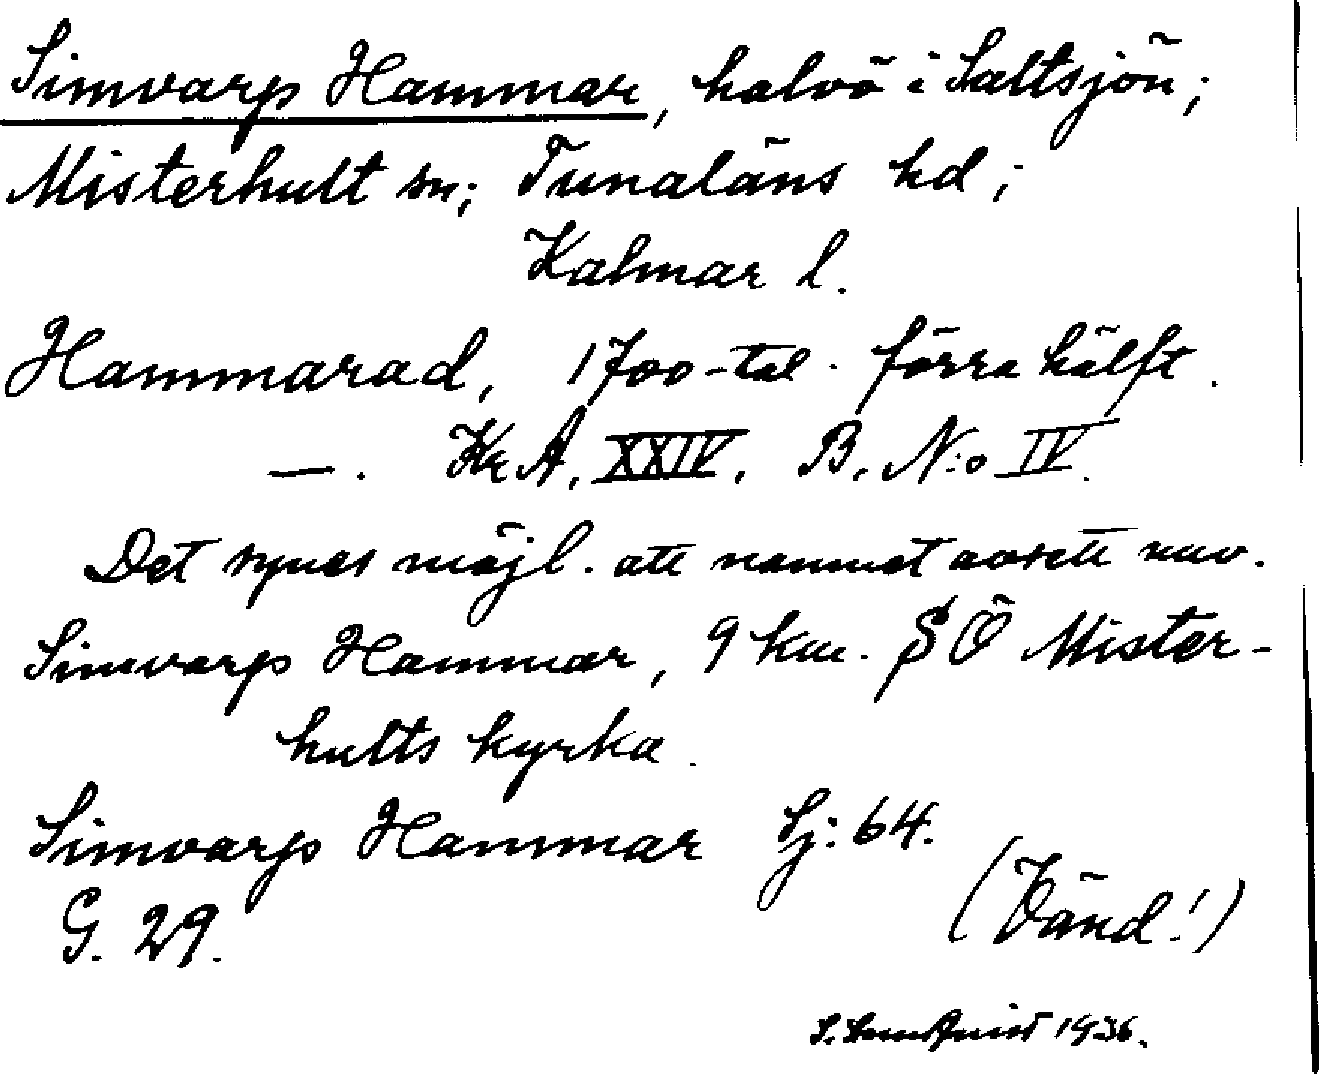 Simvarps Hammar, halvö i Saltsjön;
Misterhult sn; Tunaläns hd;
Kalmar l.
Hammarad, 1700-tal. förra hälft.
—. Kr A. XXIV. B. N:o IV.
Det synes möjl. att namnet avsett nuv.
Simvarps Hammar, 9 km. SÖ Mister-
hults kyrka.
Simvarps Hammar Sj: 64.
G. 29.
(Vänd!)
S. Sundquist 1936.